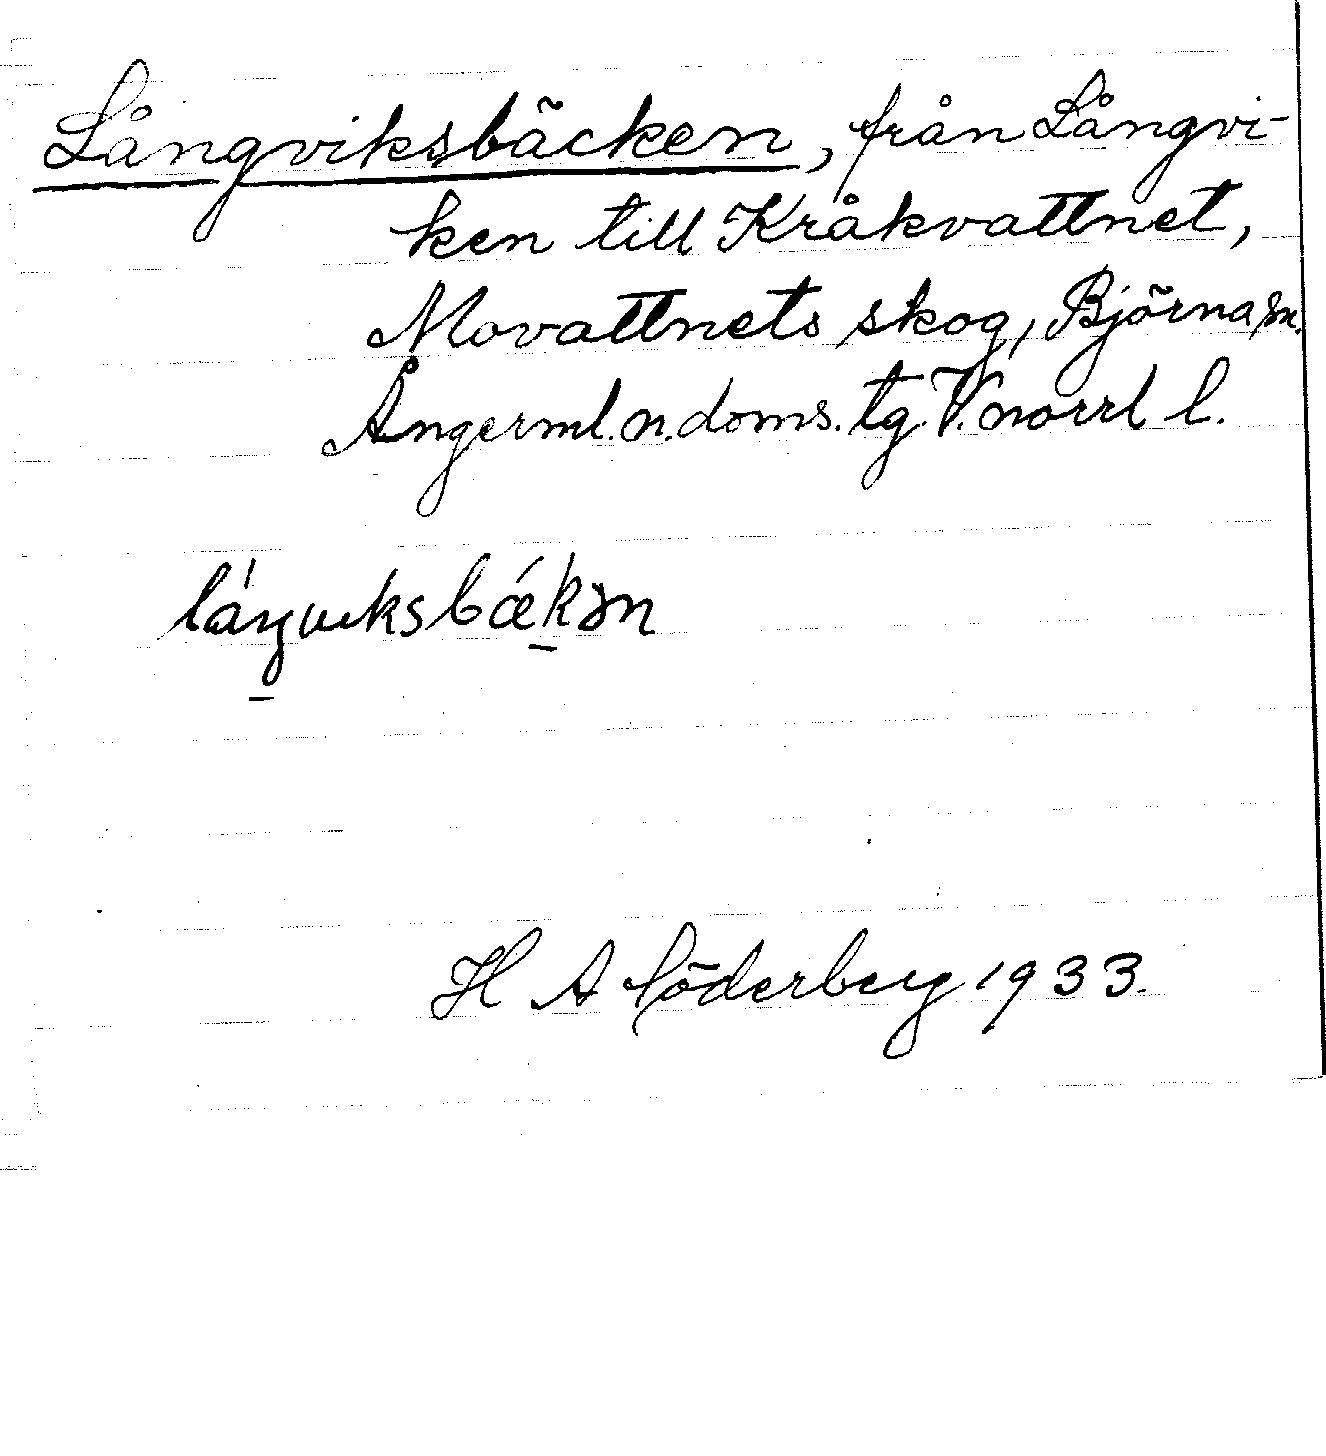 Långviksbäcken, från Långvi-
ken till Kråkvattnet,
Movattnets skog, Björna sn.
Ångerml. n. doms. tg. V. norrl l.
láŋviksbǽkən
H A Söderberg 1933.